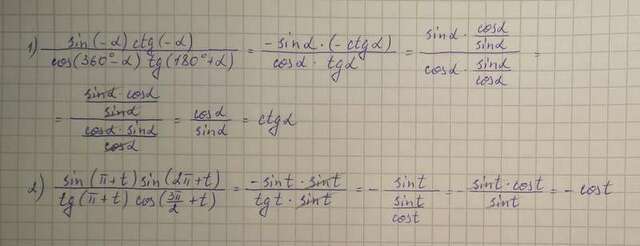 1) sin(-α) ctg(-α) / cos(360°-α) tg(180°+α) = -sinα · (-ctgα) / cosα · tgα = sinα · cosα/sinα / cosα · sinα/cosα =
= sinα · cosα / sinα / cosα · sinα / cosα = cosα / sinα = ctgα
2) sin(π+t) sin(2π+t) / tg(π+t) cos(3π/2 + t) = -sint · sint / tgt · sint = - sint / sint/cost = - sint · cost / sint = - cost